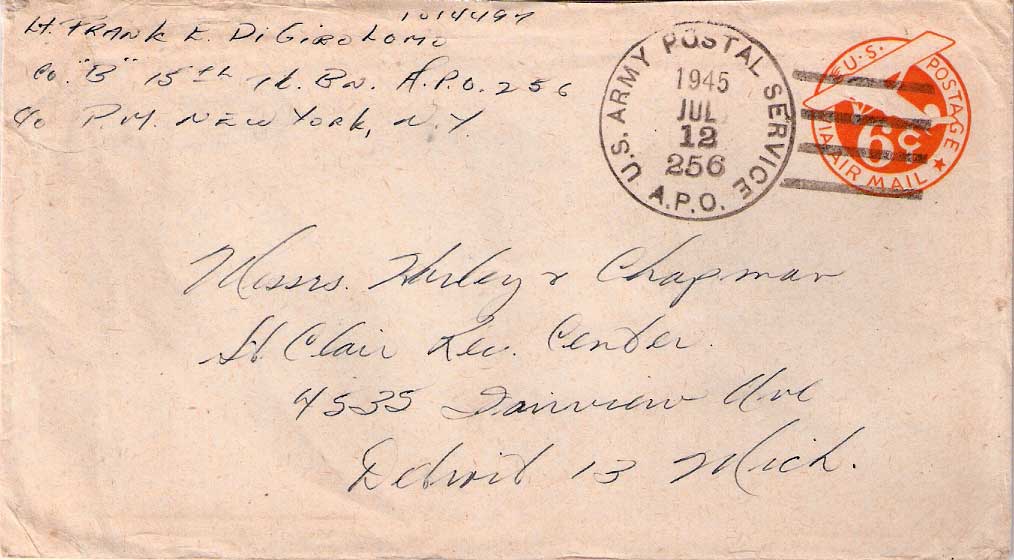 1014497
Lt. FRANK E. DiGIROLOMO
Co. "B" 15th Tk. Bn. A.P.O. 256
c/o P.M. NEW YORK, N.Y.
U.S. ARMY POSTAL SERVICE
1945
JUL
12
256
A.P.O.
U.S. POSTAGE
6c
VIA AIR MAIL
Messrs. Hurley & Chapman
St Clair Rec. Center.
4535 Fairview Ave
Detroit 13 Mich.